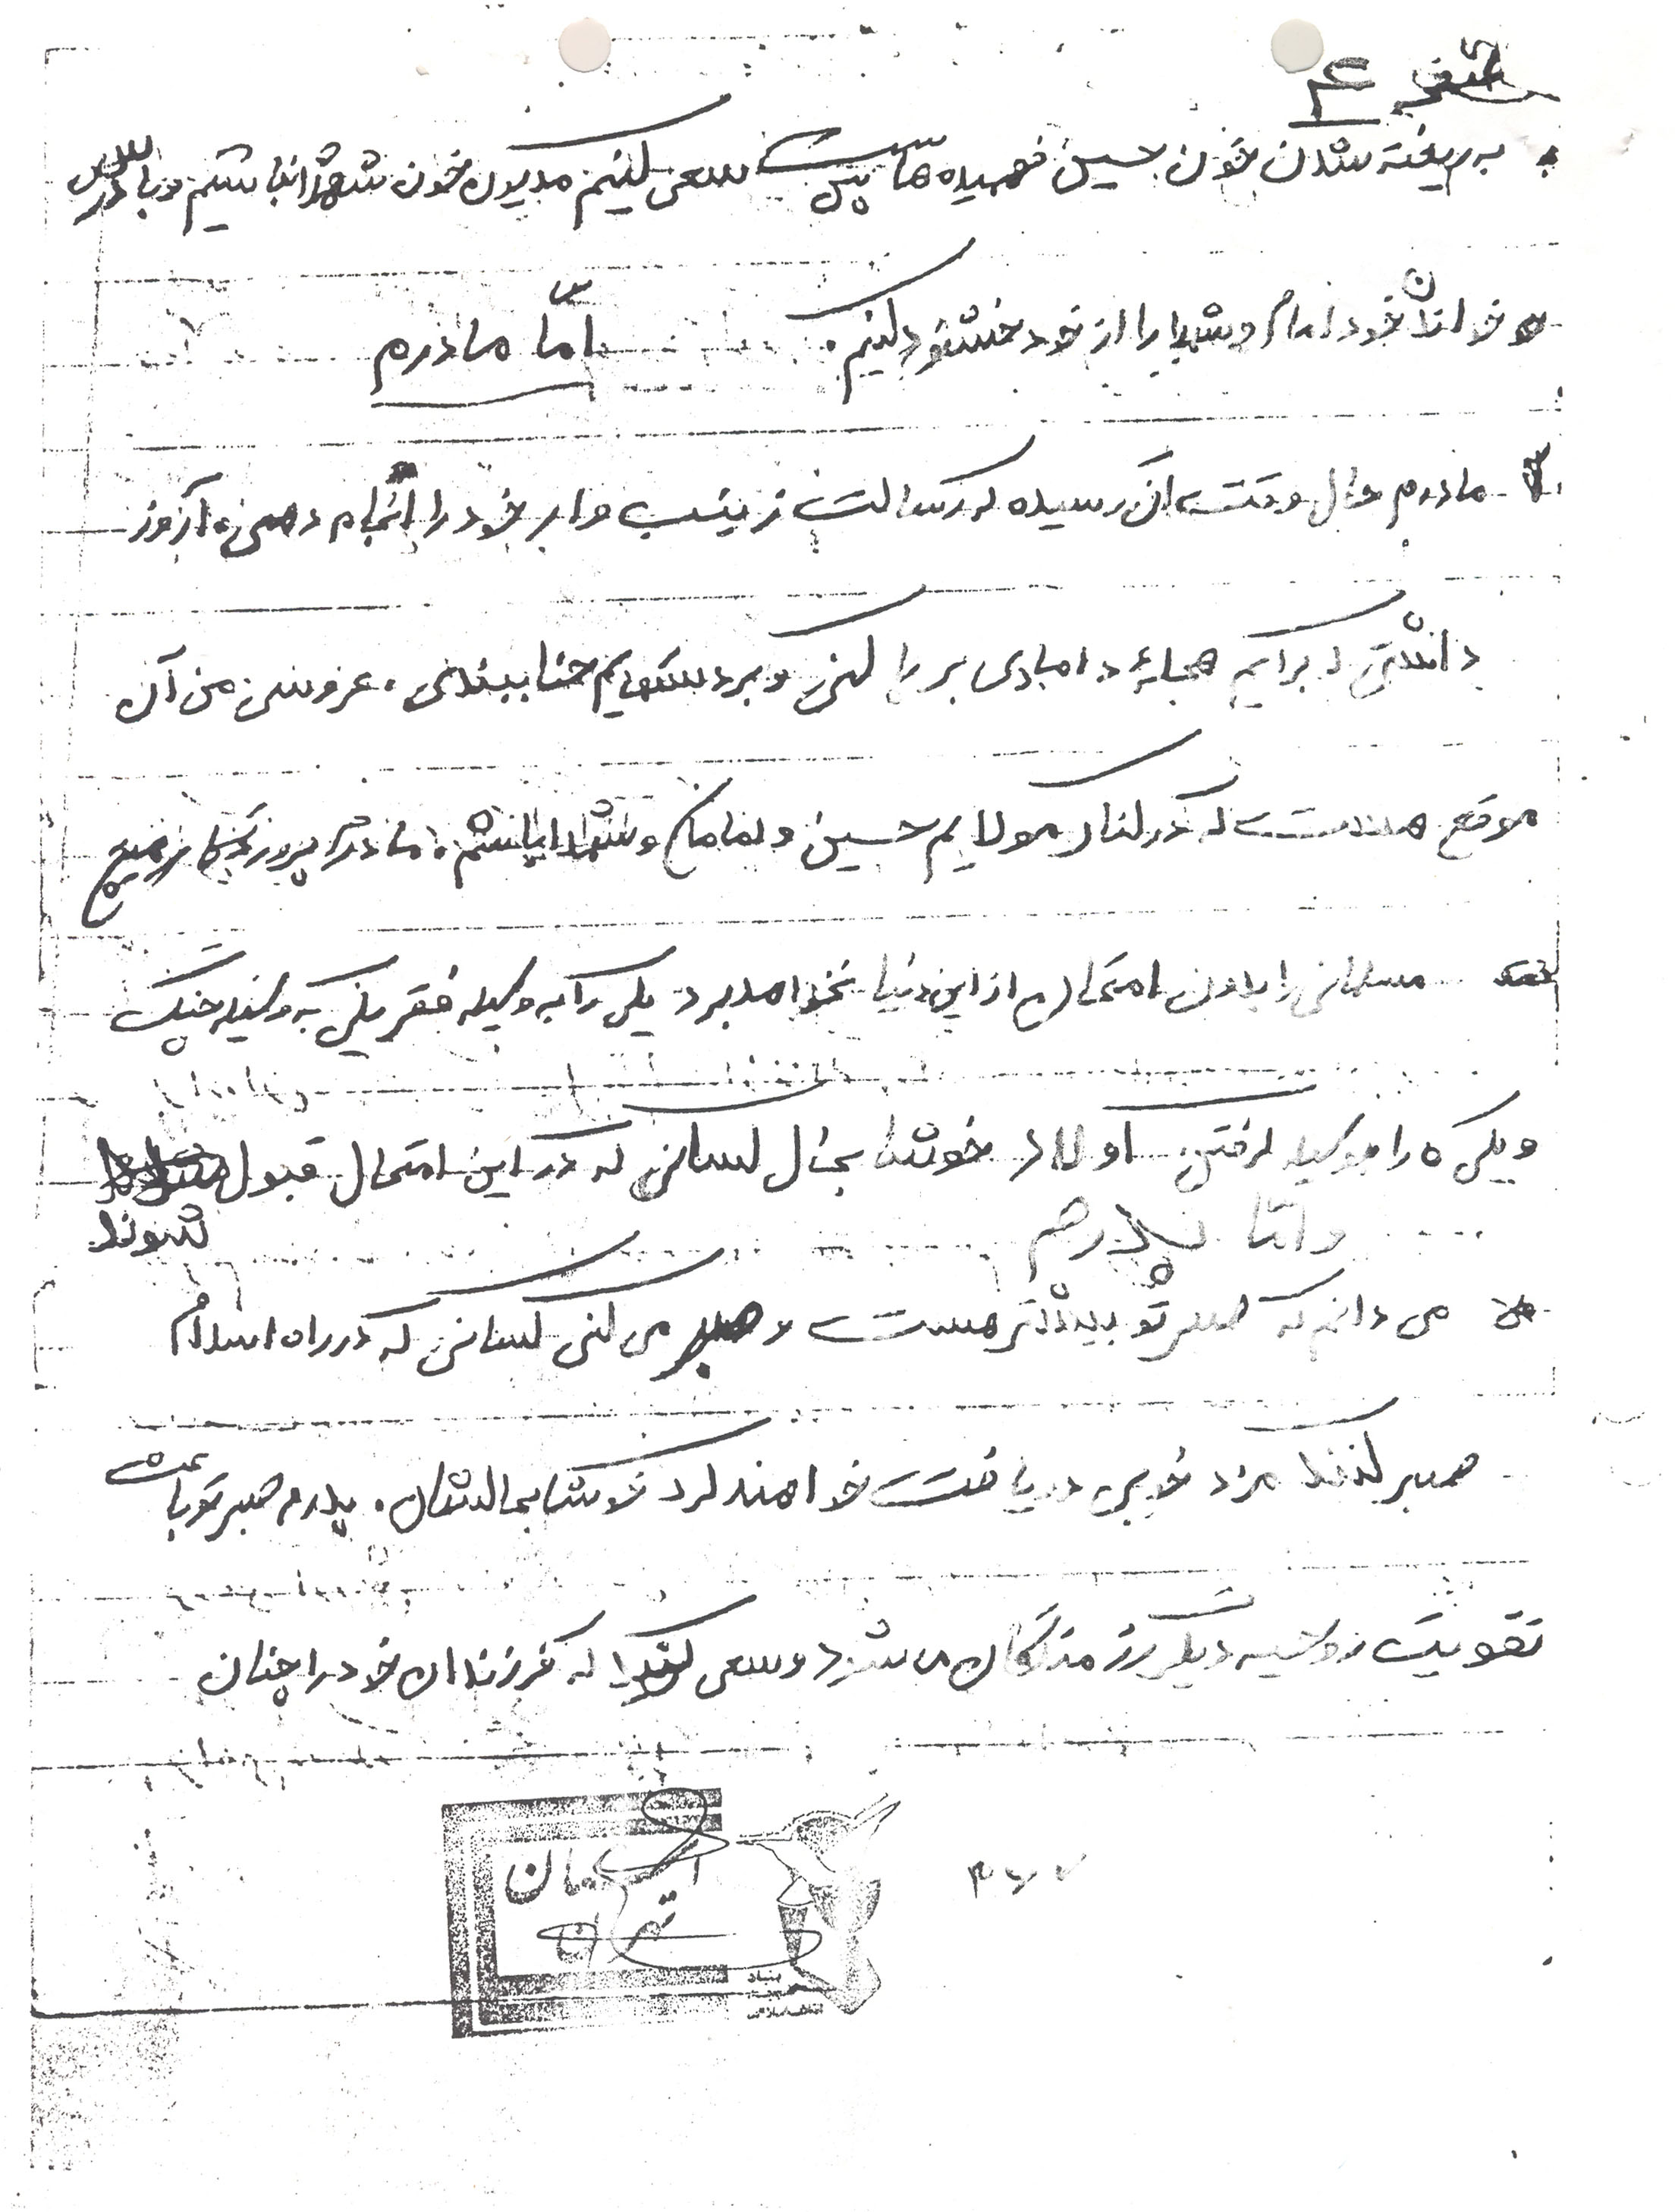 صفحه ۴
به ریخته شدن خون حسین فهمیده هاست پس سعی کنیم مدیون خون شهدا نباشیم و با درس
خواندن خود امام و شهدا را از خود خشنود کنیم. امّا مادرم
مادرم حال وقت آن رسیده که رسالت زینب وار خود را انجام دهی، آرزو
داشتی که برایم حجلهٔ دامادی بر پا کنی و بر دستهایم حنا ببندی. عروسی من آن
موقع هست که در کنار مولایم حسین و امامان و شهدا باشم. مادرم پروردگار هیچ
مسلمانی را بدون امتحان از این دنیا نخواهد برد یکی را به وسیله فقر یکی به وسیله جنگ
و یکی را بوسیله گرفتن اولاد خوشا بحال کسانی که در این امتحان قبول
شوند
و امّا پدرم
می دانم که صبر تو بیشتر هست و صبر می کنی کسانی که در راه اسلام
صبر کنند مزد خوبی دریافت خواهند کرد خوشا بحالشان. پدرم صبر تو باعث
تقویت روحیه دیگر رزمندگان می شود و سعی کنید که فرزندان خود را چنان
استان
تهران
بنیاد